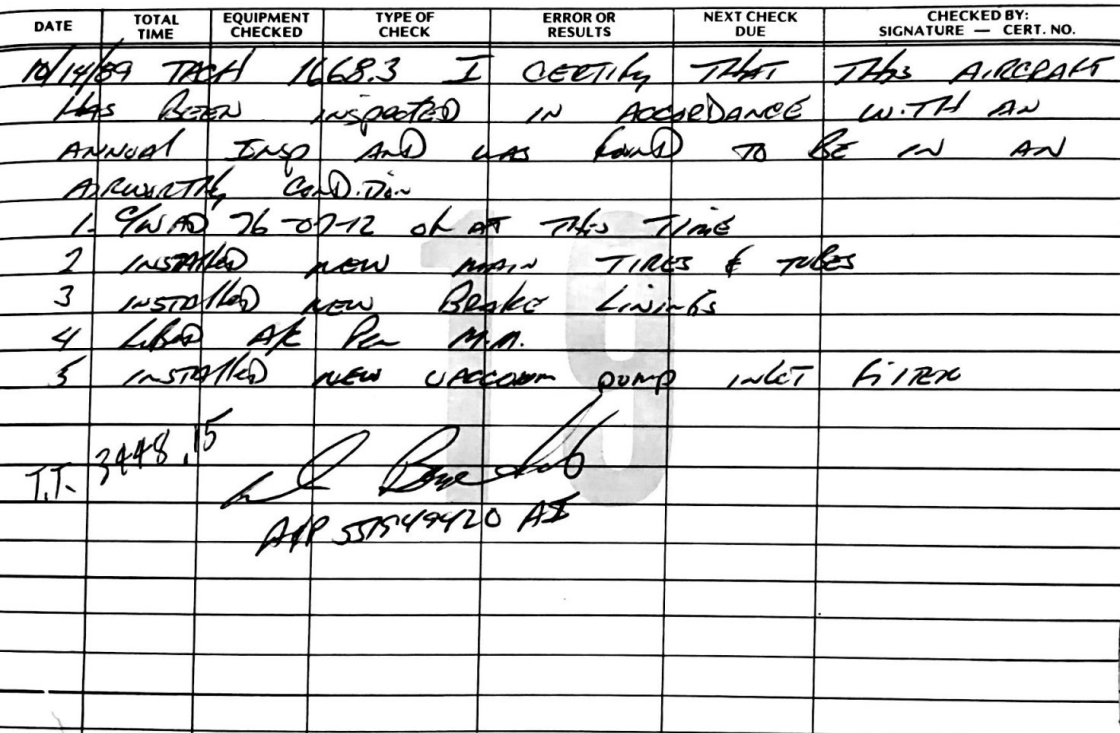 DATE TOTAL TIME EQUIPMENT CHECKED TYPE OF CHECK ERROR OR RESULTS NEXT CHECK DUE CHECKED BY: SIGNATURE — CERT. NO.
10/14/89 TACH 1668.3 I CERTIFY THAT THIS AIRCRAFT
HAS BEEN INSPECTED IN ACCORDANCE WITH AN
ANNUAL INSP AND WAS FOUND TO BE IN AN
AIRWORTHY CONDITION
1. C/W AD 76-07-12 OK AT THIS TIME
2 INSTALLED NEW MAIN TIRES & TUBES
3 INSTALLED NEW BRAKE LININGS
4 LUBED A/C PER M.M.
5 INSTALLED NEW VACCOUM PUMP INLET FILTER
T.T. 3448.15
A&P 551549420 AI
19